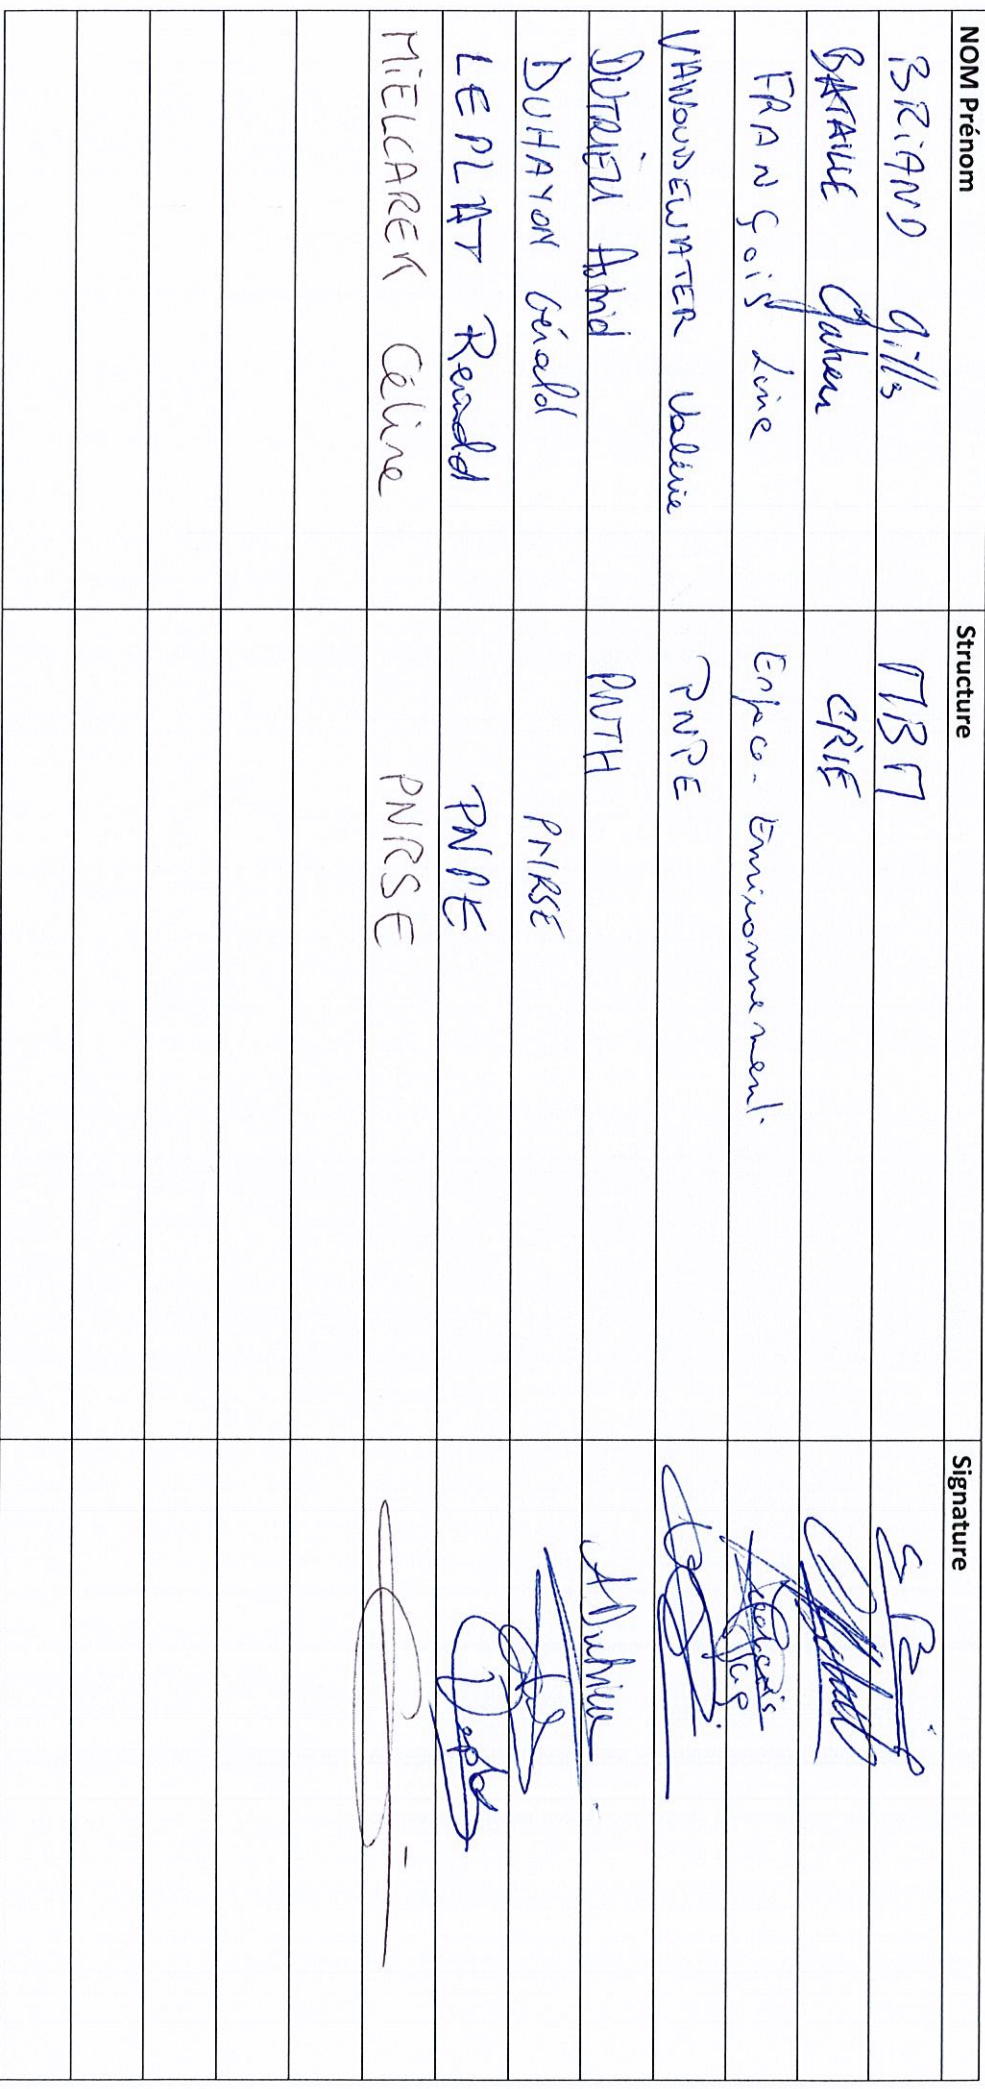 NOM Prénom Structure Signature
BRIAND Gilles MBM
BATAILLE CRIE
FRANÇois Line Enjeco- Environnement
VANOUDEWATER Valérie PNPE
DUTRIEU Astrid PNTH ADutrieu
DUHAYON Gérald PNRSE
LEPLAT Renald PNPE
MiELCAREK Céline PNRSE